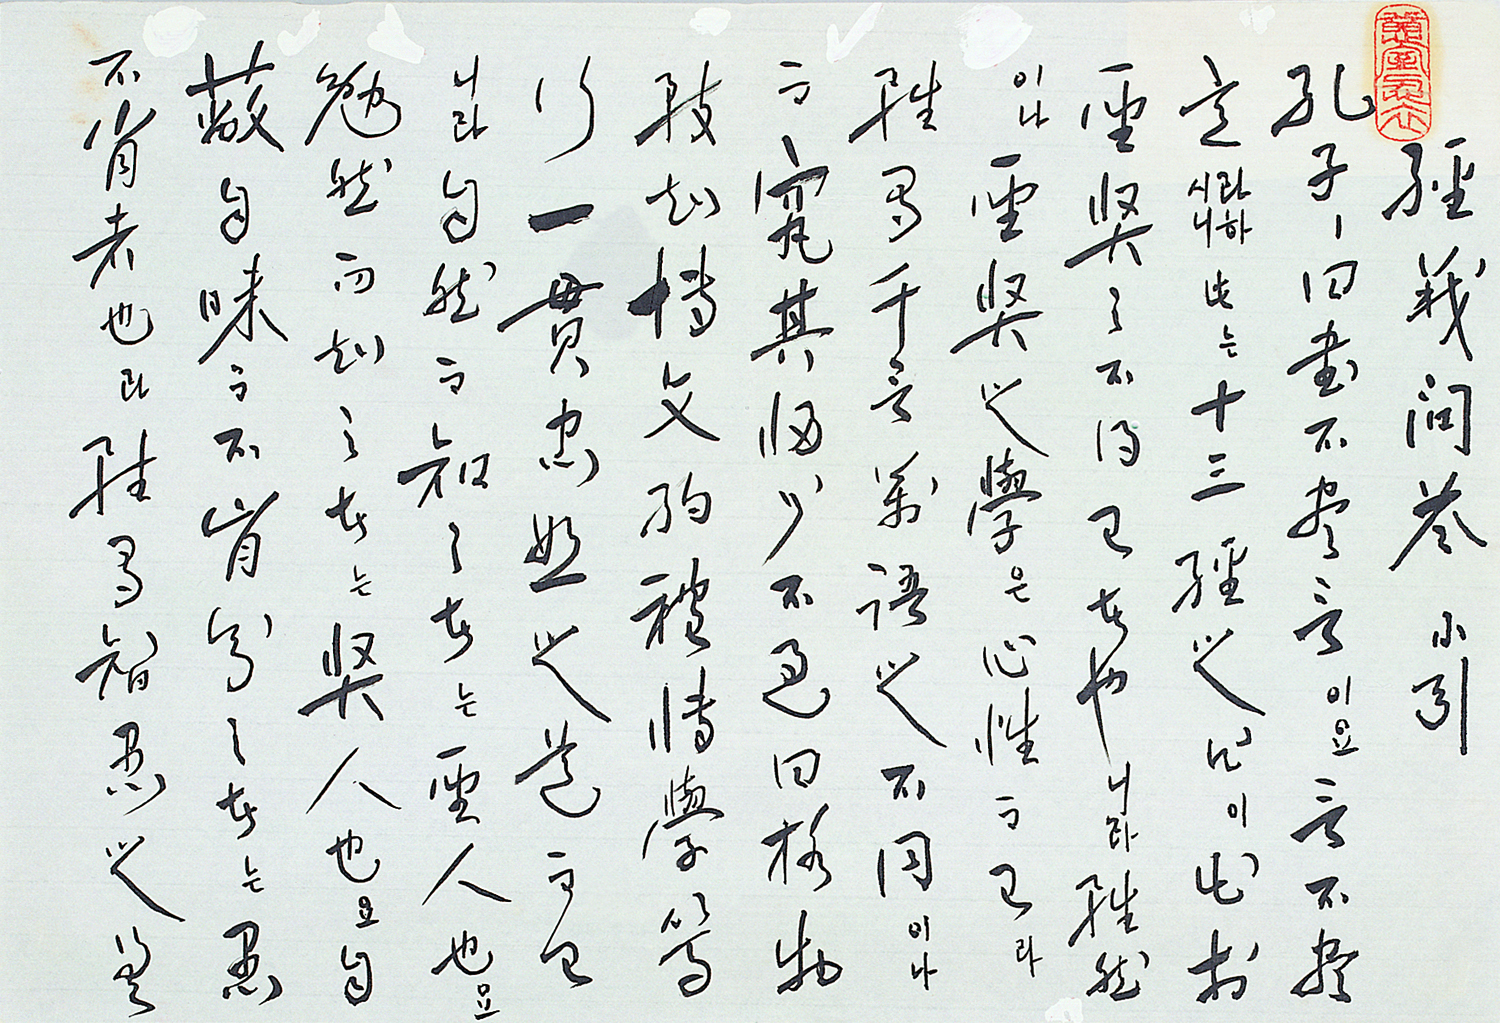 經義問答 小引
孔子ㅣ曰書不盡言이요言不盡
意라하시니此는十三經之所이出於
聖賢之不得已者也니라雖然
이나聖賢之學은心性而已라
雖有千言萬語之不同이나
而究其歸則不過曰格物
致知博文約禮博學篤
行一貫忠恕之道而已
니라自然而知之者는聖人也요
勉然而知之者는賢人也요自
蔽自昧而不肯之者는愚
不肖者也라雖有智愚之